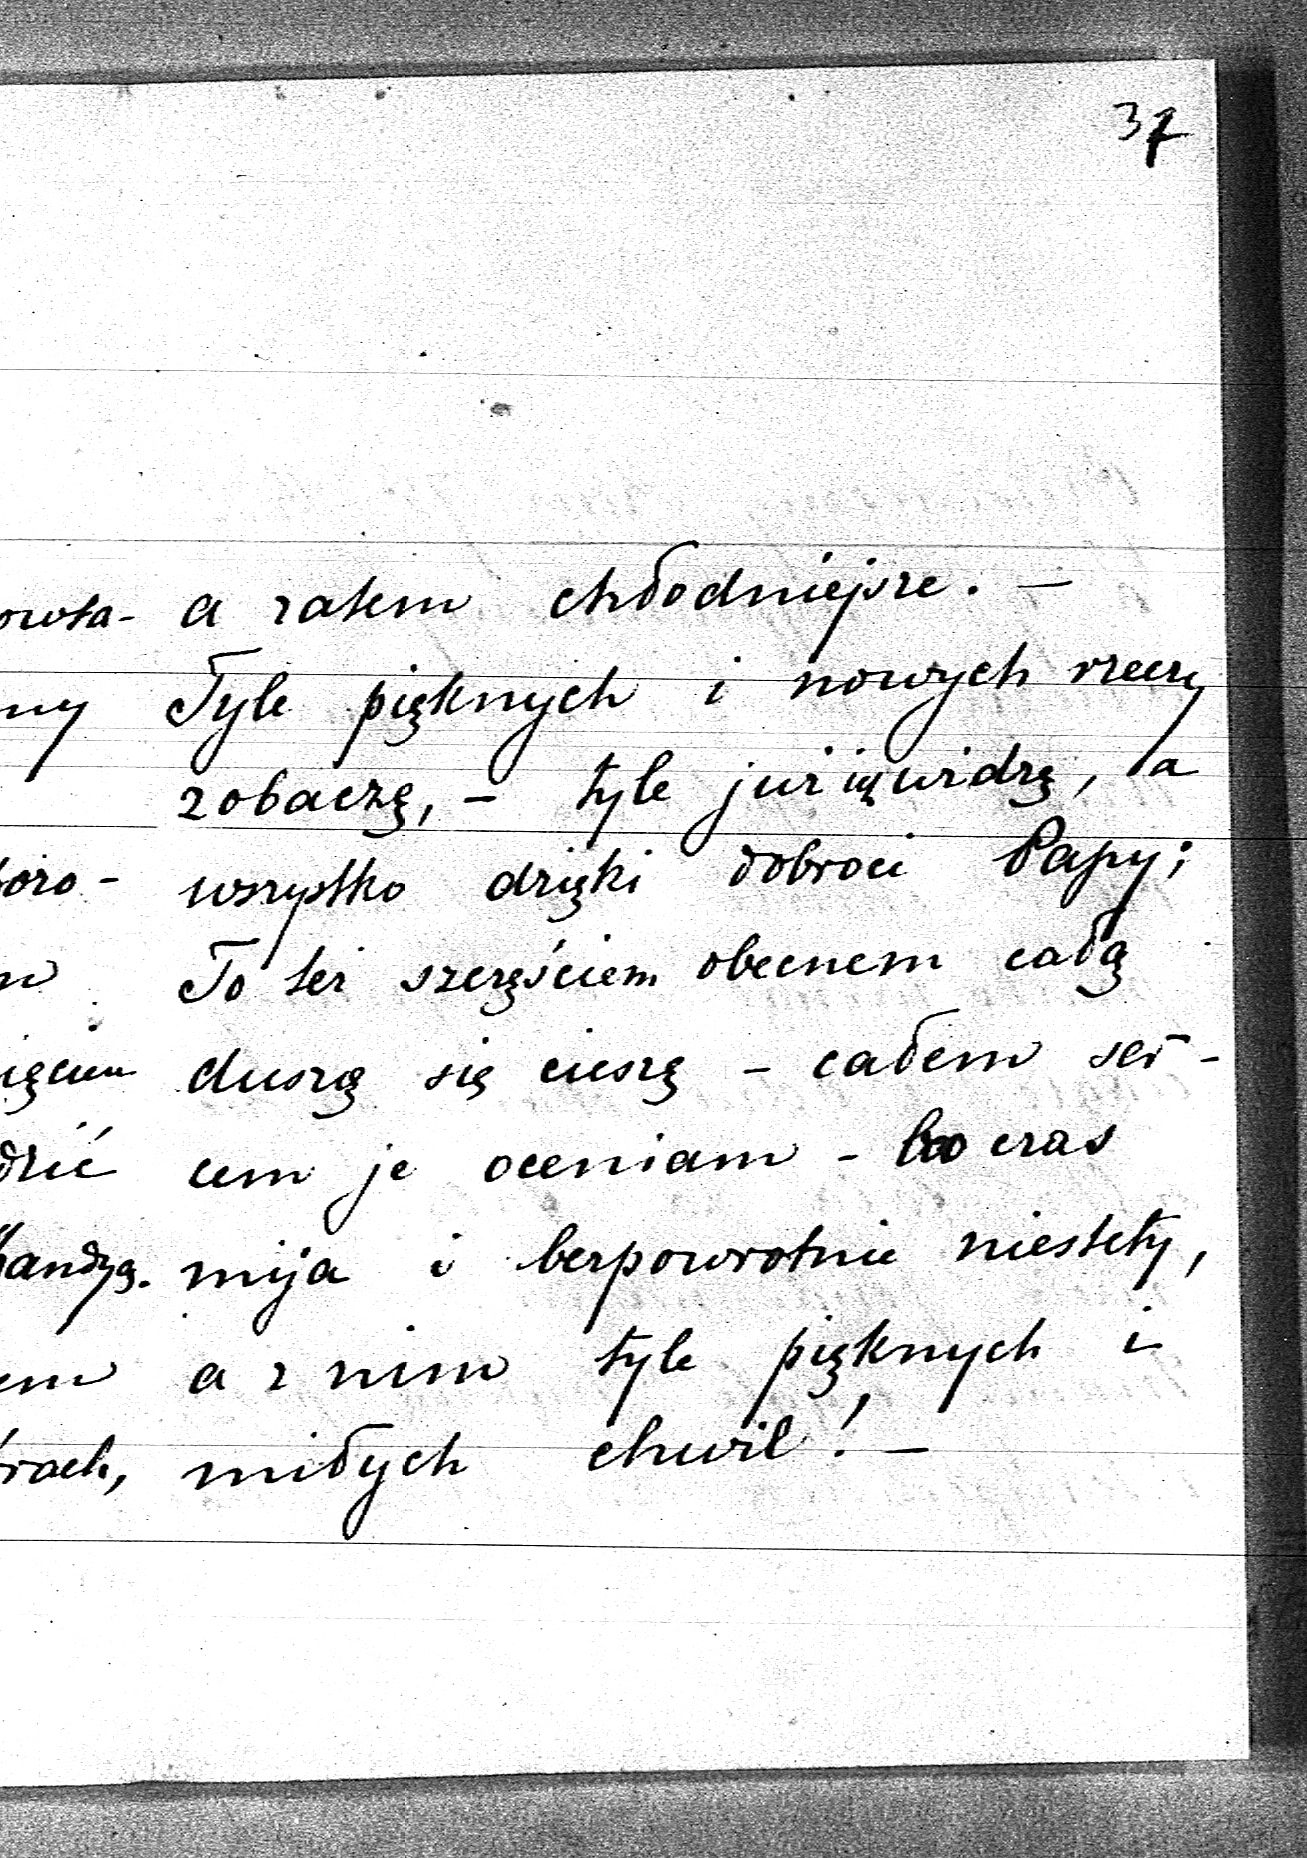 37
a zatem chłodniejsze. —
Tyle pięknych i nowych rzeczy
zobaczę, — tyle już widzę, a
wszystko dzięki dobroci Papy;
To też szczęściem obecnem całą
duszą się cieszę — całem ser-
cem je oceniam — bo czas
mija i bezpowrotnie niestety,
a z nim tyle pięknych i
miłych chwil! —